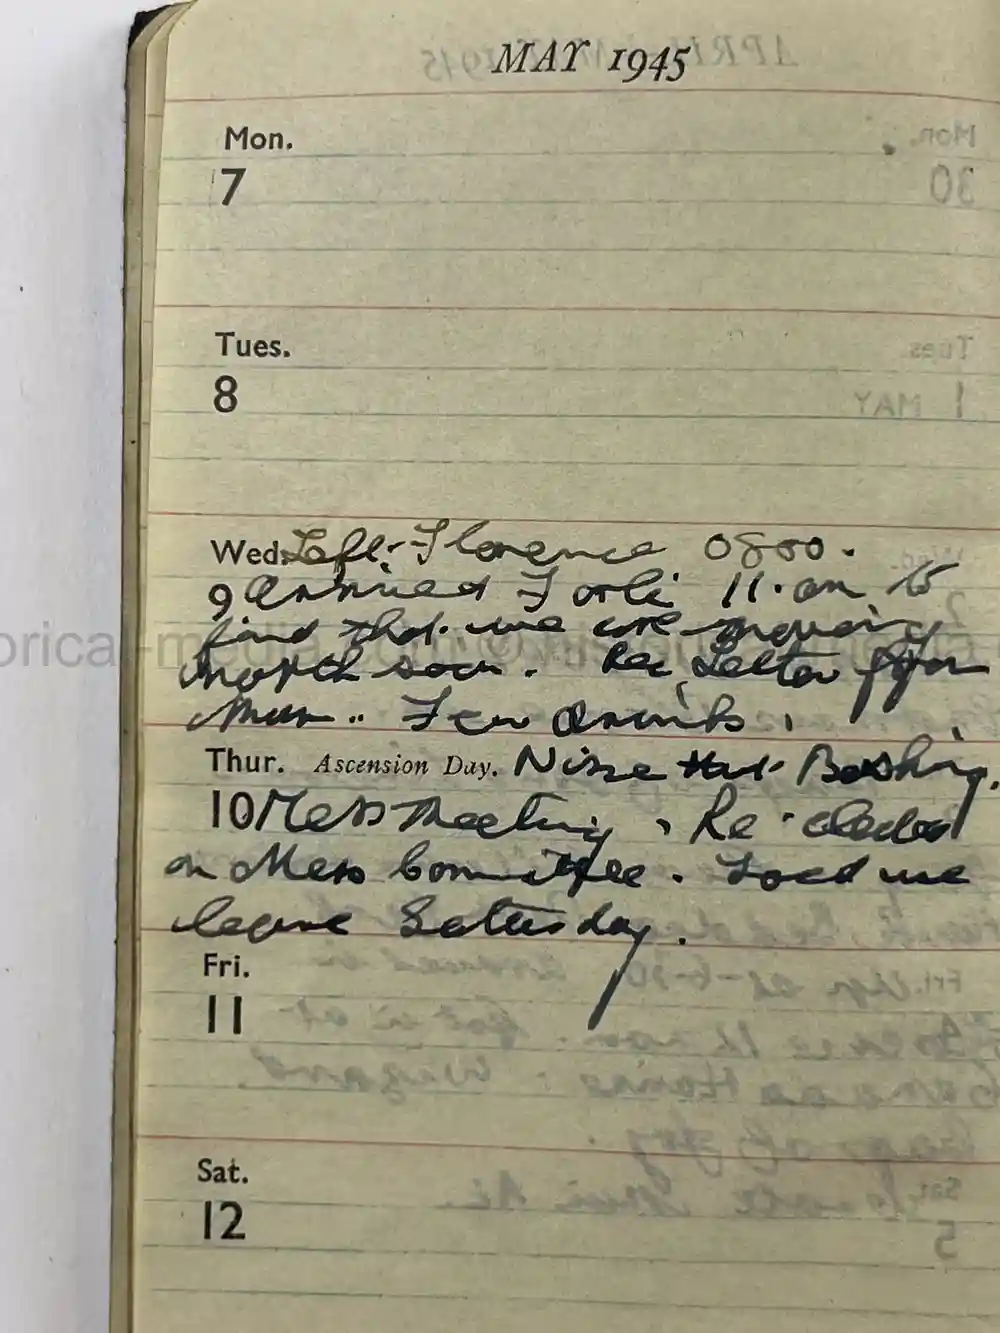 MAY 1945
Mon.
7
Tues.
8
Wed. Left Florence 0800.
9 Arrived Forli 11.am to
find that we are moving
north soon. Rec Letter from
Mum.. Few drinks.
Thur. Ascension Day. Nice Hut Bashing.
10 Mess Meeting. Re-elected
on Mess Committee. Told we
leave Saturday.
Fri.
11
Sat.
12